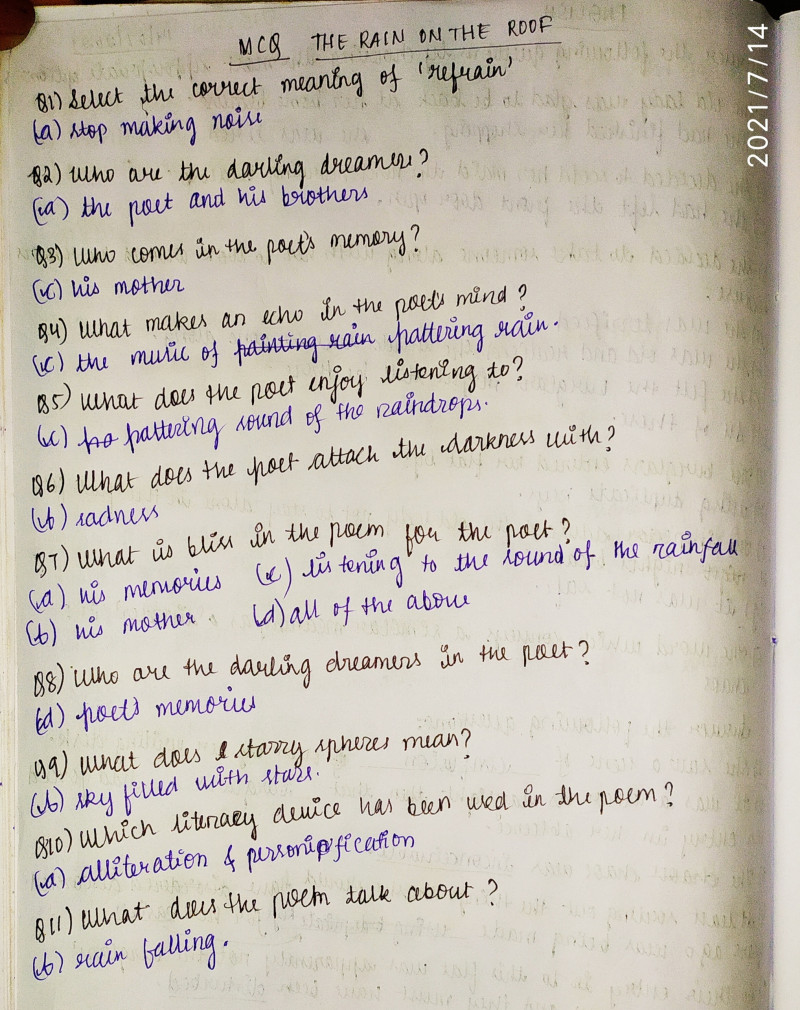 MCQ THE RAIN ON THE ROOF
2021/7/14
Q1) Select the correct meaning of 'refrain'
(a) stop making noise
Q2) Who are the darling dreamers?
(a) the poet and his brothers
Q3) Who comes in the poet's memory?
(c) his mother
Q4) What makes an echo in the poet's mind?
(c) the music of painting rain pattering rain.
Q5) What does the poet enjoy listening to?
(c) pattering sound of the raindrops.
Q6) What does the poet attach the darkness with?
(b) sadness
Q7) What is bliss in the poem for the poet?
(a) his memories (c) listening to the sound of the rainfall
(b) his mother (d) all of the above
Q8) Who are the darling dreamers in the poet?
(d) poet's memories
Q9) What does starry spheres mean?
(b) sky filled with stars.
Q10) Which literary device has been used in the poem?
(a) alliteration & personification
Q11) What does the poem talk about?
(b) rain falling.